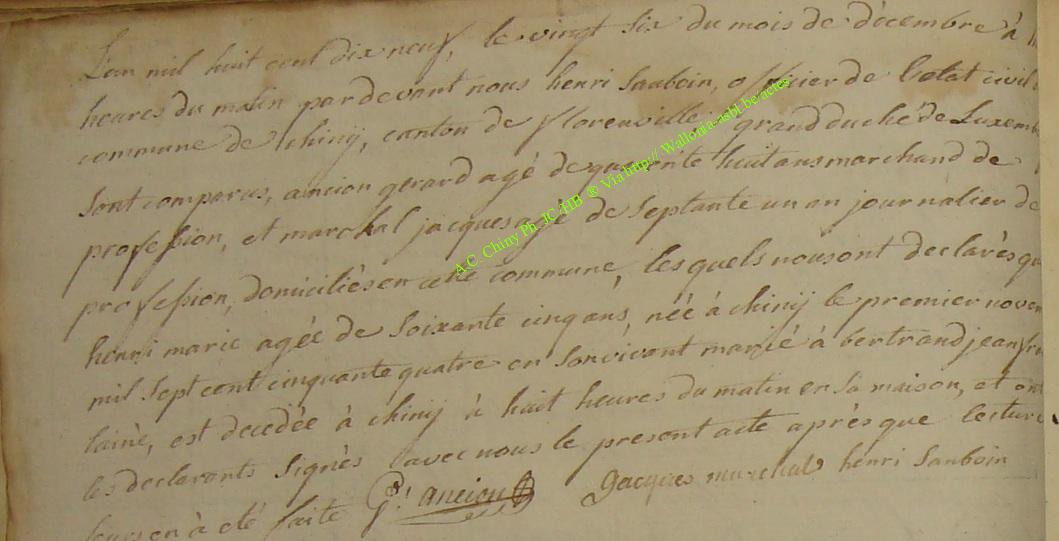 L'an mil huit cent dix neuf, le vingt six du mois de décembre à
heures du matin pardevant nous henri Sauboin, officier de l'etat civil
commune de Chinij, canton de florenville, grand duché de Luxemb
sont comparus, ancion gerard agé de quarente huit ans marchand de
profession, et marchal jacques agé de septante un an journalier de
profession, domiciliés en cette commune, lesquels nous ont declarés qu
henri marie agée de soixante cinq ans, née à chinij le premier novem
mil sept cent cinquante quatre en son vivant marié à bertrand jean fr
lainè, est decedée à chinij à huit heures du matin en sa maison, et ont
les declarants signès avec nous le present acte après que lecture
leurs en à eté faite G.d ancion Jacques marchal henri Sauboin
A.C. Chiny Ph. JC /HB ® Via http:// Wallonia-asbl.be/actes